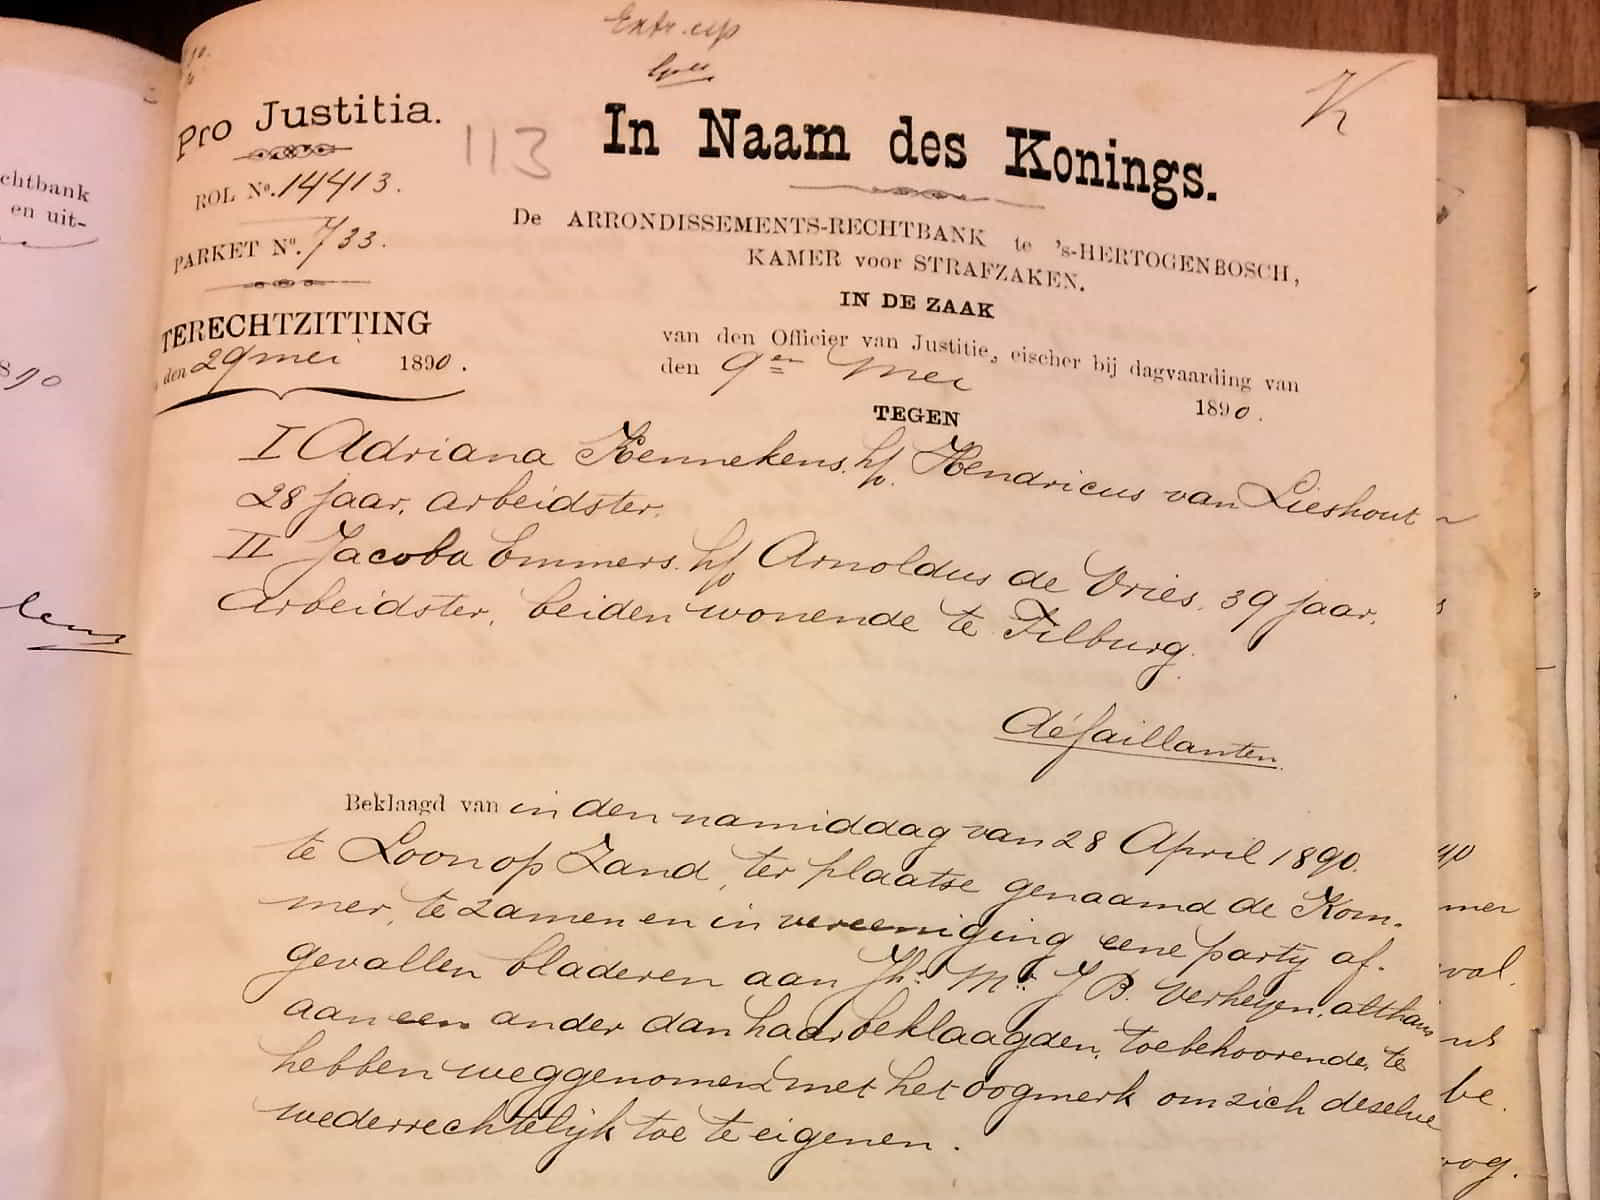 Pro Justitia.
ROL No. 14413.
PARKET No. 733.
TERECHTZITTING
den 29 mei 1890.
113
K
In Naam des Konings.
De ARRONDISSEMENTS-RECHTBANK te 's-HERTOGENBOSCH,
KAMER voor STRAFZAKEN.
IN DE ZAAK
van den Officier van Justitie, eischer bij dagvaarding van
den 9en Mei 1890.
TEGEN
I Adriana Hennekens. hf. Hendricus van Lieshout
28 jaar, arbeidster.
II Jacoba Emmers. hf. Arnoldus de Vries, 39 jaar,
Arbeidster, beiden wonende te Tilburg.
défaillanten.
Beklaagd van in den namiddag van 28 April 1890.
te Loon op Zand, ter plaatse genaamd de Kom-
mer, te zamen en in vereeniging eene party af-
gevallen bladeren aan Jhr. Mr. J B. Verheyen, althans
aan een ander dan haar beklaagden, toebehoorende, te
hebben weggenomen met het oogmerk om zich deselve
wederrechtelijk toe te eigenen.
chtbank
en uit-
1890
mer
val.
be.
oog.